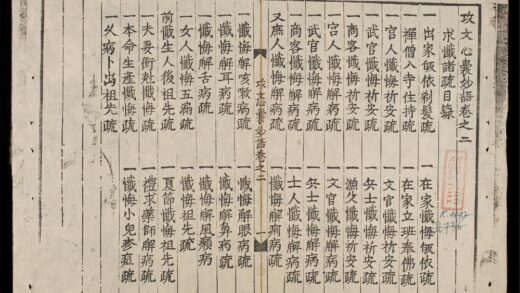 攻文心囊妙語卷之二
求懺諸疏目錄
一出家皈依剃髮疏 一在家懺悔皈依疏
一禪僧入寺住持疏 一在家立班奉佛疏
一官人懺悔祈安疏 一文官懺悔祈安疏
一武官懺悔祈安疏 一兵士懺悔祈安疏
一商客懺悔祈安疏 一漁父懺悔祈安疏
一宮人懺悔解病疏 一文官懺悔解病疏
一武官懺悔解病疏 一兵士懺悔解病疏
一商客懺悔解病疏 一士人懺悔解病疏
又庶人懺悔解病疏 一懺悔解病疏
攻文心囊妙語卷之二 一
一懺悔解咳嗽病疏 一懺悔解眼病疏
一懺悔解耳病疏 一懺悔解鼻病疏
一懺悔解舌病疏 一懺悔解風癩病
一女人懺悔五疏 一懺悔祖先疏
前懺生人後祖先疏 一夏節懺悔祖先疏
一夫妻衝尅懺悔疏 一禮求藥師解病疏
一本命生產懺悔疏 一懺悔小兒疹疏
一久病卜出祖先疏